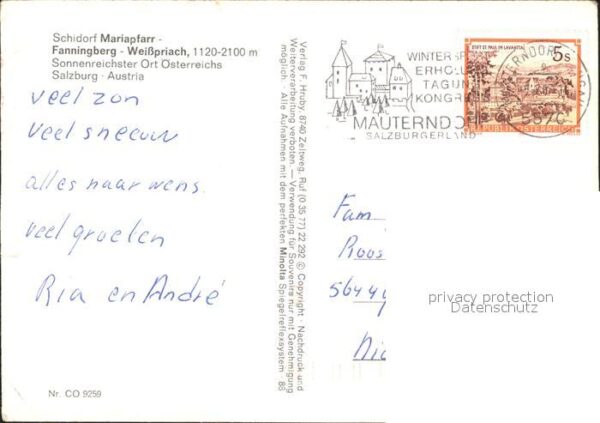 Schidorf Mariapfarr -
Fanningberg - Weißpriach, 1120-2100 m
Sonnenreichster Ort Österreichs
Salzburg · Austria
veel zon
veel sneeuw
alles naar wens.
veel groeten
Ria en André
Nr. CO 9259
Verlag F. Hruby, 8740 Zeltweg, Ruf (0 35 77) 22 292 © Copyright · Nachdruck und
Weiterverarbeitung verboten. — Verwendung für Souvenirs nur mit Genehmigung
möglich. · Alle Aufnahmen mit dem perfekten Minolta Spiegelreflexsystem · 88
WINTER
ERHOL
TAGUN
KONGRE
MAUTERNDO
SALZBURGERLAND
STIFT ST. PAUL IM LAVANTTAL
5s
REPUBLIK ÖSTERREICH
5570
Fam
Roos
5644
privacy protection
Datenschutz